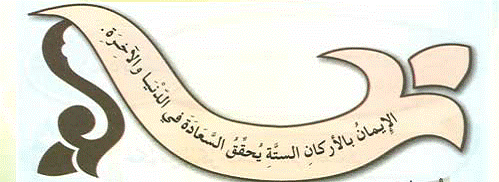 الإيمانُ بالأركانِ الستَّةِ يُحقِّقُ السَّعادَةَ في الدّنْيا والآخِرَةِ.